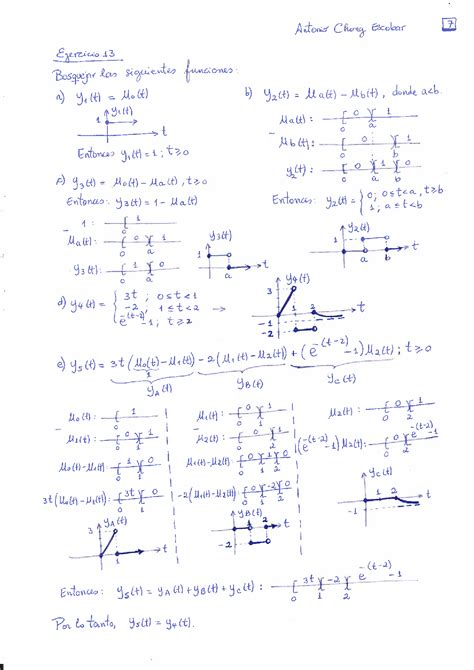 Antonio Chong Escobar 7
Ejercicio 13
Bosquejar las siguientes funciones:
a) y₁(t) = μ₀(t)
y₁(t)
1
t
Entonces y₁(t) = 1 ; t ≥ 0
b) y₂(t) = μa(t) − μb(t), donde a<b.
μa(t): [ 0 )[ 1
0 a
−
μb(t): [ 0 )[ 1
0 b
y₂(t): [ 0 )[ 1 )[ 0
0 a b
Entonces: y₂(t) = { 0 ; 0≤t<a, t≥b
1 ; a≤t<b
y₂(t)
a b t
c) y₃(t) = μ₀(t) − μa(t) , t≥0
Entonces: y₃(t) = 1 − μa(t)
1 : [ 1
0
−
μa(t): [ 0 )[ 1
0 a
y₃(t): [ 1 )[ 0
0 a
y₃(t)
1
a t
d) y₄(t) = { 3t ; 0≤t<1
−2 , 1≤t<2
e^-(t-2) −1 ; t≥2
→
y₄(t)
3
1 2 t
−1
−2
e) y₅(t) = 3t(μ₀(t) − μ₁(t)) − 2(μ₁(t) − μ₂(t)) + (e^-(t-2) −1)μ₂(t) ; t≥0
1
yA(t) yB(t) yC(t)
μ₀(t): [ 1
0
−
μ₁(t): [ 0 )[ 1
0 1
μ₀(t)−μ₁(t): [ 1 )[ 0
0 1
3t(μ₀(t)−μ₁(t)): [ 3t )[ 0
0 1
yA(t)
3
1 t
μ₁(t): [ 0 )[ 1
0 1
−
μ₂(t): [ 0 )[ 1
0 2
μ₁(t)−μ₂(t): [ 0 )[ 1 )[ 0
0 1 2
−2(μ₁(t)−μ₂(t)): [ 0 )[ −2 )[ 0
0 1 2
yB(t)
1 2 t
−2
μ₂(t): [ 0 )[ 1
0 2
(e^-(t-2) −1)μ₂(t): [ 0 )[ e^-(t-2) −1
0 2
yC(t)
1 2 t
−1
Entonces: y₅(t) = yA(t) + yB(t) + yC(t) : [ 3t )[ −2 )[ e^-(t-2) −1
0 1 2
Por lo tanto, y₅(t) = y₄(t).